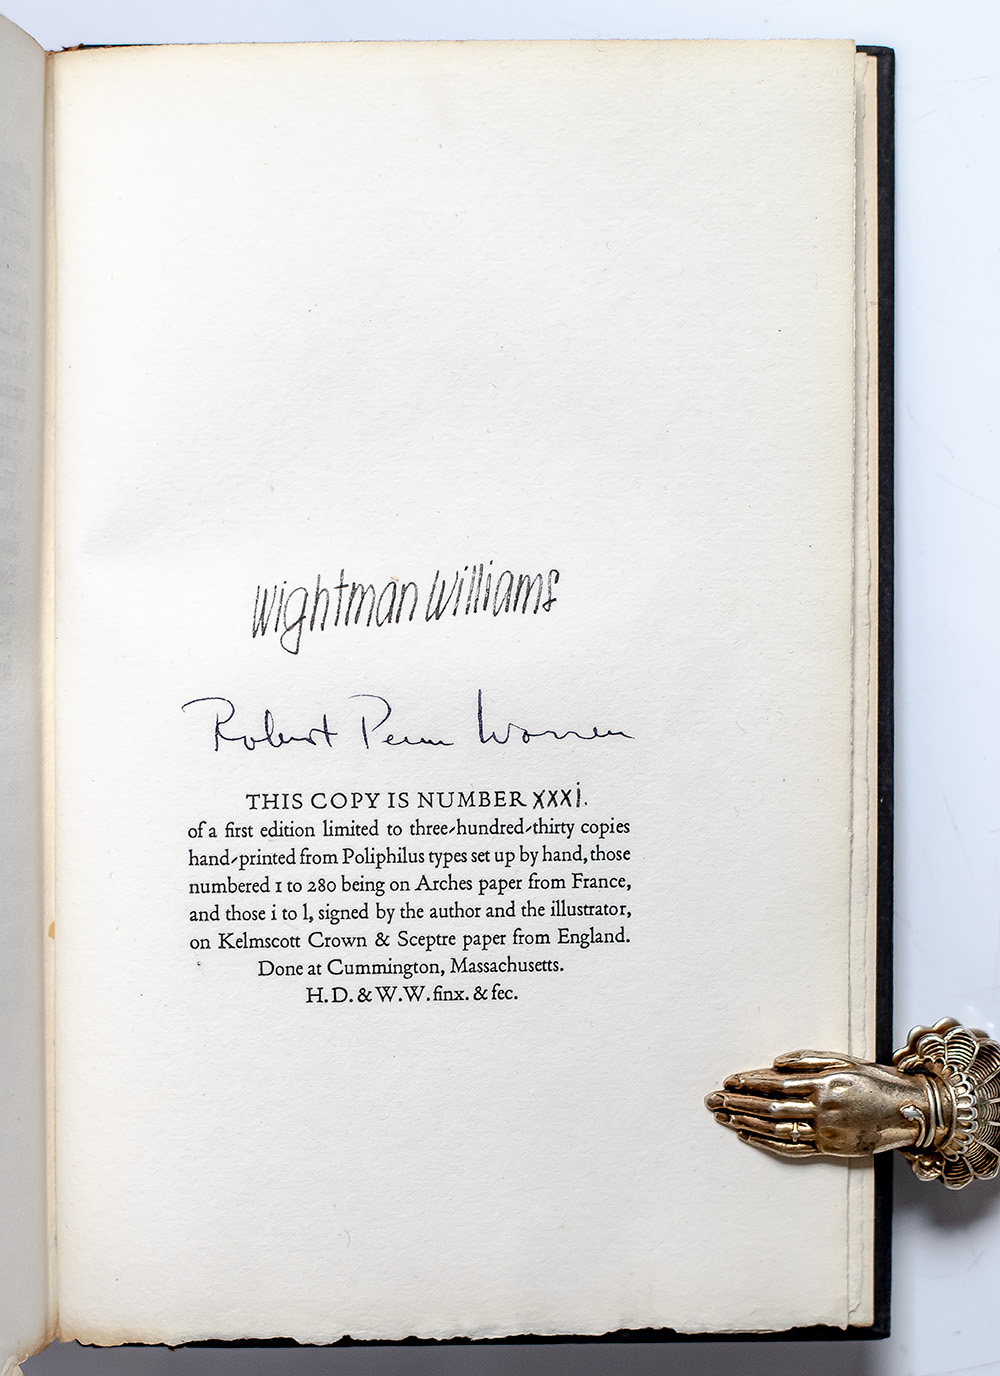 Wightman Williams
Robert Penn Warren
THIS COPY IS NUMBER xxxi.
of a first edition limited to three-hundred-thirty copies
hand-printed from Poliphilus types set up by hand, those
numbered 1 to 280 being on Arches paper from France,
and those i to l, signed by the author and the illustrator,
on Kelmscott Crown & Sceptre paper from England.
Done at Cummington, Massachusetts.
H. D. & W. W. finx. & fec.